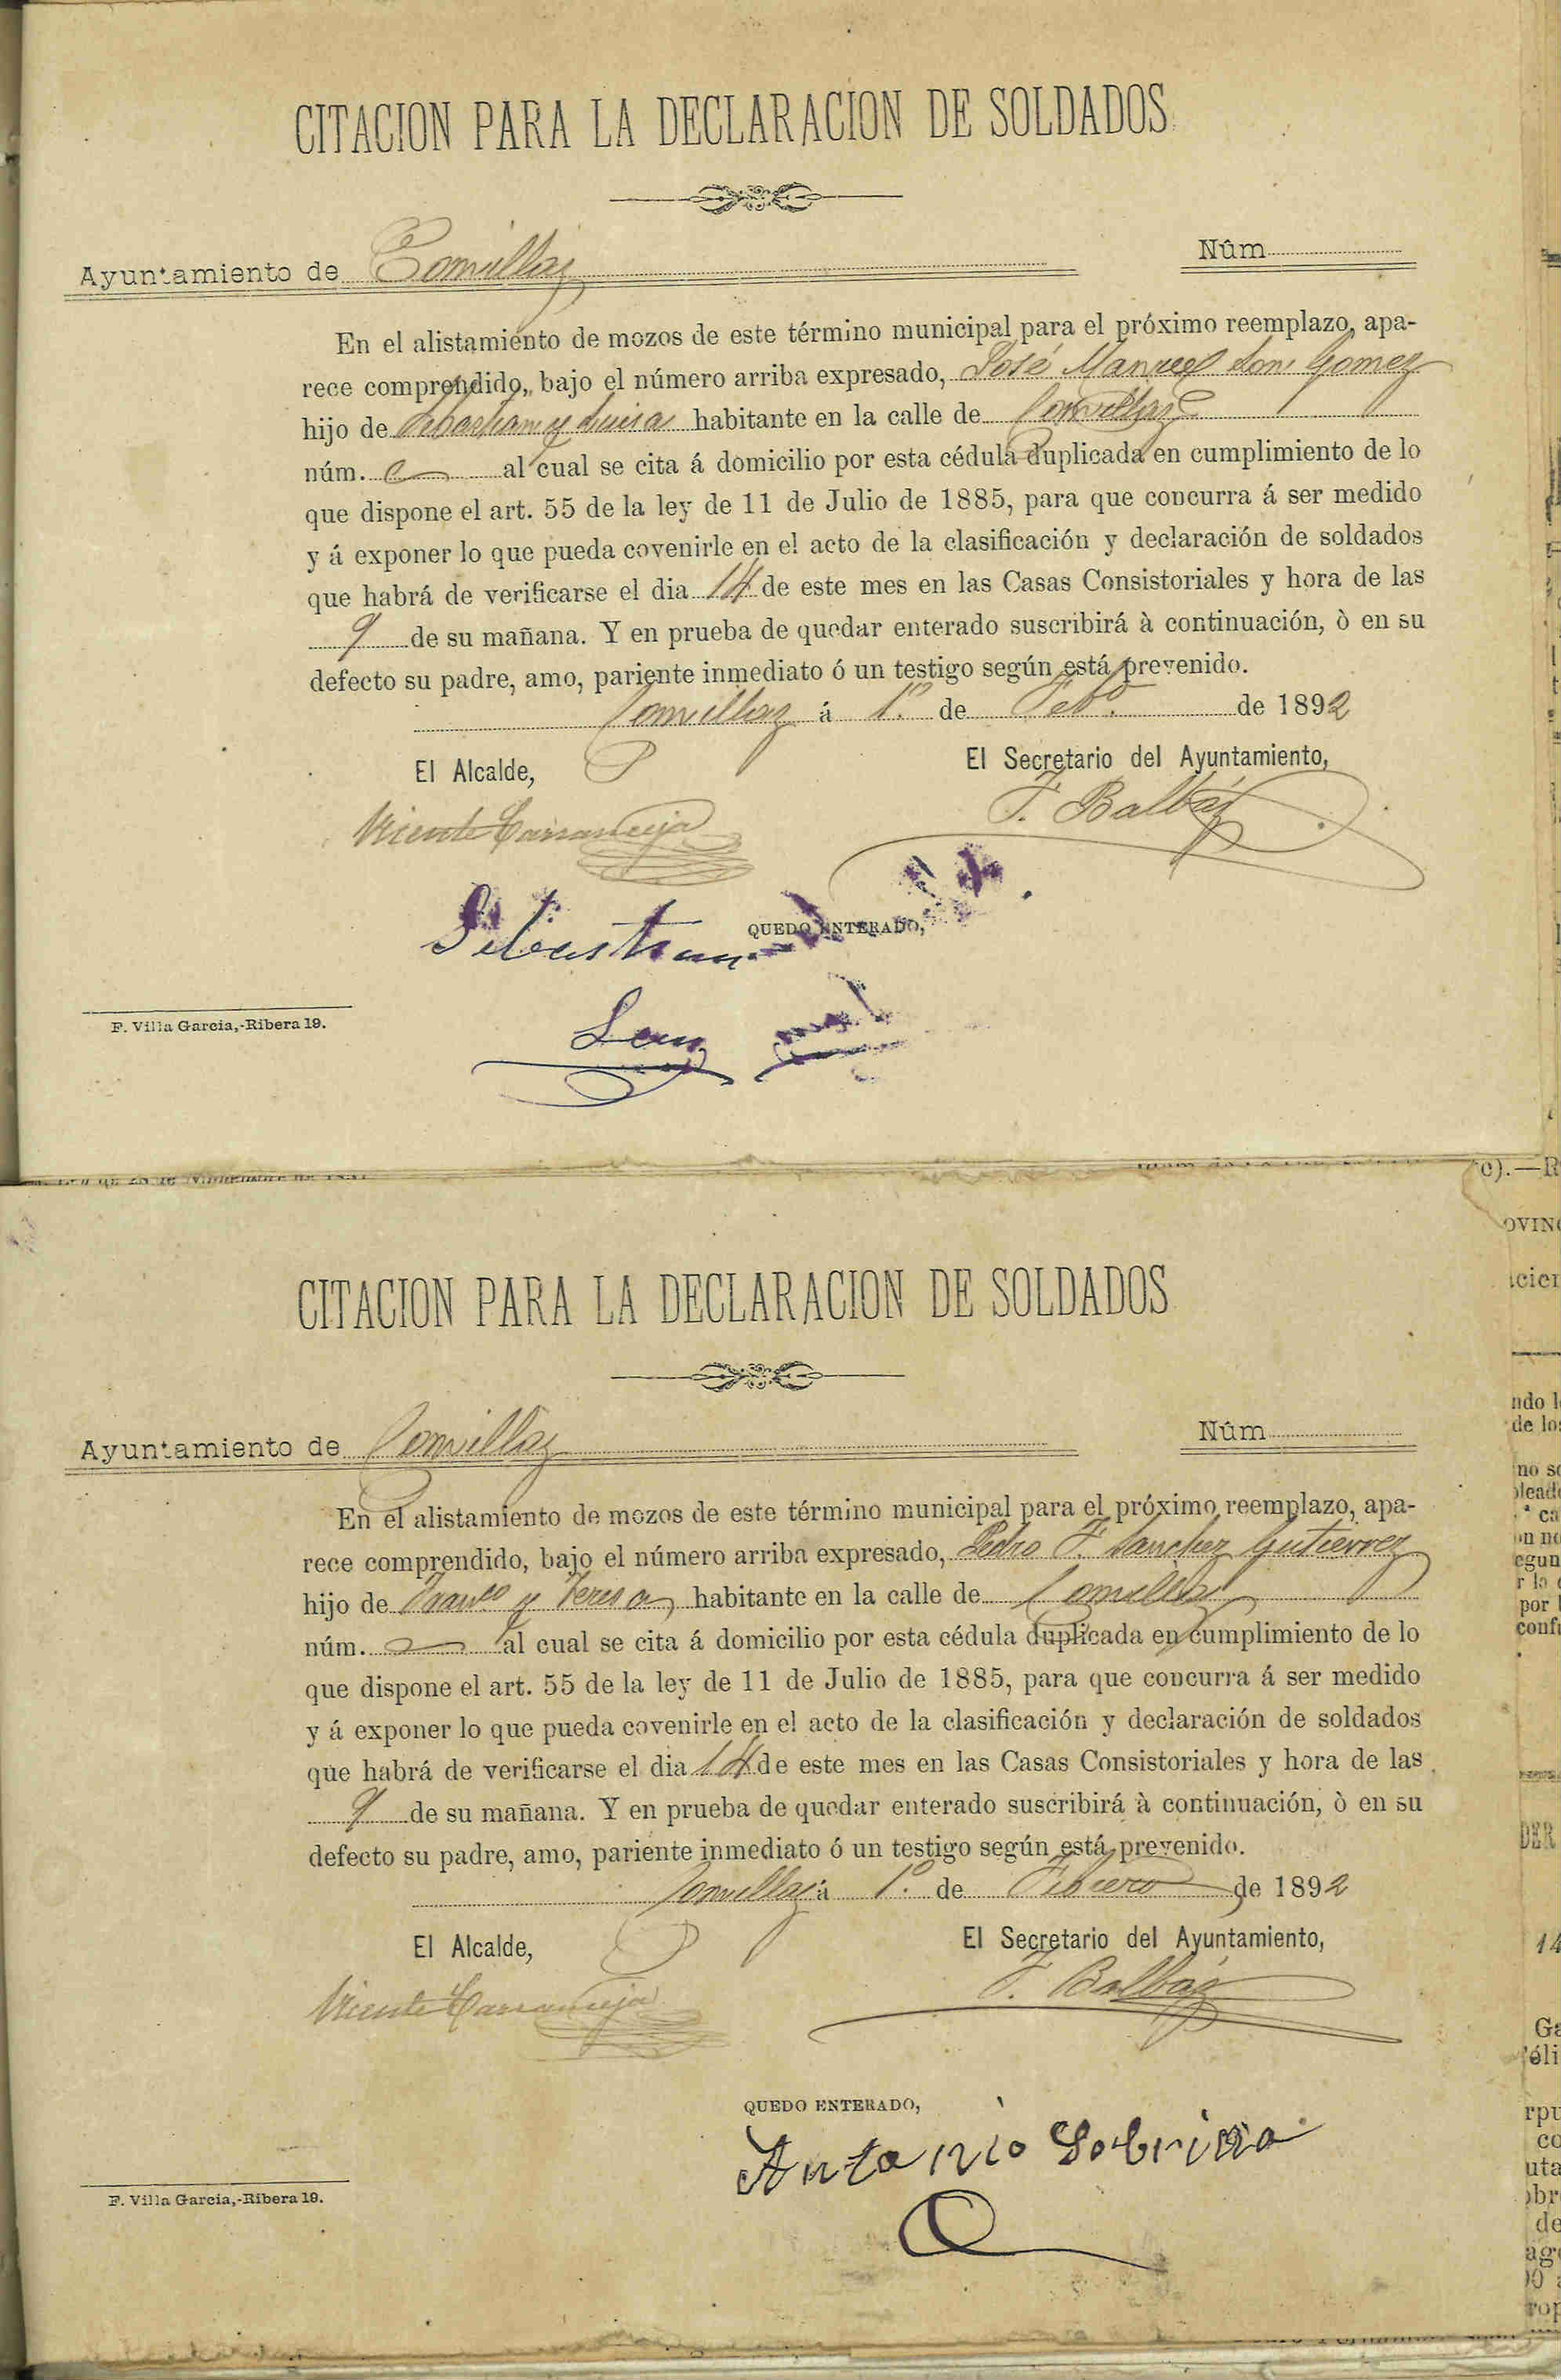 CITACION PARA LA DECLARACION DE SOLDADOS
Ayuntamiento de Comillas Núm.
En el alistamiento de mozos de este término municipal para el próximo reemplazo, apa-
rece comprendido, bajo el número arriba expresado, José Manuel Gomez
hijo de Sebastian y Luisa habitante en la calle de Comillas
núm. al cual se cita á domicilio por esta cédula duplicada en cumplimiento de lo
que dispone el art. 55 de la ley de 11 de Julio de 1885, para que concurra á ser medido
y á exponer lo que pueda covenirle en el acto de la clasificación y declaración de soldados
que habrá de verificarse el dia 14 de este mes en las Casas Consistoriales y hora de las
9 de su mañana. Y en prueba de quedar enterado suscribirá à continuación, ò en su
defecto su padre, amo, pariente inmediato ó un testigo según está prevenido.
Comillas á 1.º de Feb.º de 1892
El Alcalde, El Secretario del Ayuntamiento,
Vicente Carranceja F. Balbás
QUEDO ENTERADO,
Sebastian
F. Villa Garcia,-Ribera 19.
CITACION PARA LA DECLARACION DE SOLDADOS
Ayuntamiento de Comillas Núm.
En el alistamiento de mozos de este término municipal para el próximo reemplazo, apa-
rece comprendido, bajo el número arriba expresado, Pedro F. Sanchez Gutierrez
hijo de Franco y Teresa habitante en la calle de Comillas
núm. al cual se cita á domicilio por esta cédula duplicada en cumplimiento de lo
que dispone el art. 55 de la ley de 11 de Julio de 1885, para que concurra á ser medido
y á exponer lo que pueda covenirle en el acto de la clasificación y declaración de soldados
que habrá de verificarse el dia 14 de este mes en las Casas Consistoriales y hora de las
9 de su mañana. Y en prueba de quedar enterado suscribirá à continuación, ò en su
defecto su padre, amo, pariente inmediato ó un testigo según está prevenido.
Comillas á 1.º de Febrero de 1892
El Alcalde, El Secretario del Ayuntamiento,
Vicente Carranceja F. Balbás
QUEDO ENTERADO,
Antonio Sobrino
F. Villa Garcia,-Ribera 19.